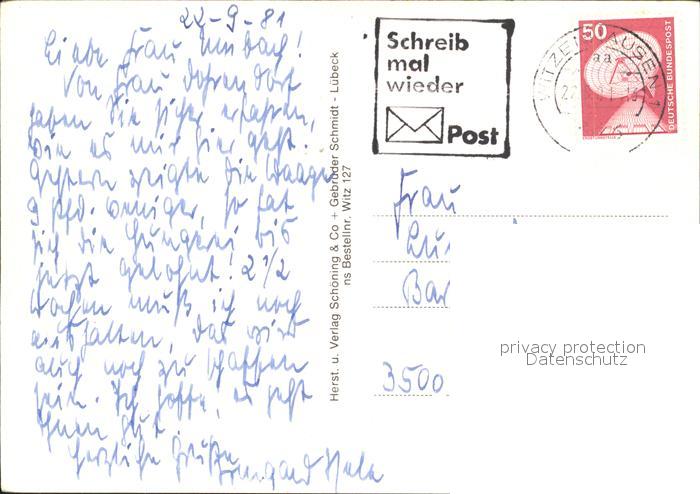 22-9-81
Liebe Frau Umbach!
Von Frau Dohrendorf
haben Sie sicher erfahren,
wie es mir hier geht.
Gestern zeigte die Waage
9 Pfd. weniger, so hat
sich die Hungerei bis
jetzt gelohnt! 2 1/2
Wochen muß ich noch
aushalten, das wird
auch noch zu schaffen
sein. Ich hoffe, es geht
Ihnen gut.
Herzliche Grüße
Irmgard
Herst. u. Verlag Schöning & Co + Gebrüder Schmidt - Lübeck
ns Bestellnr. Witz 127
Schreib
mal
wieder
Post
WITZENHAUSEN 1
aa
50
DEUTSCHE BUNDESPOST
Frau
3500
privacy protection
Datenschutz